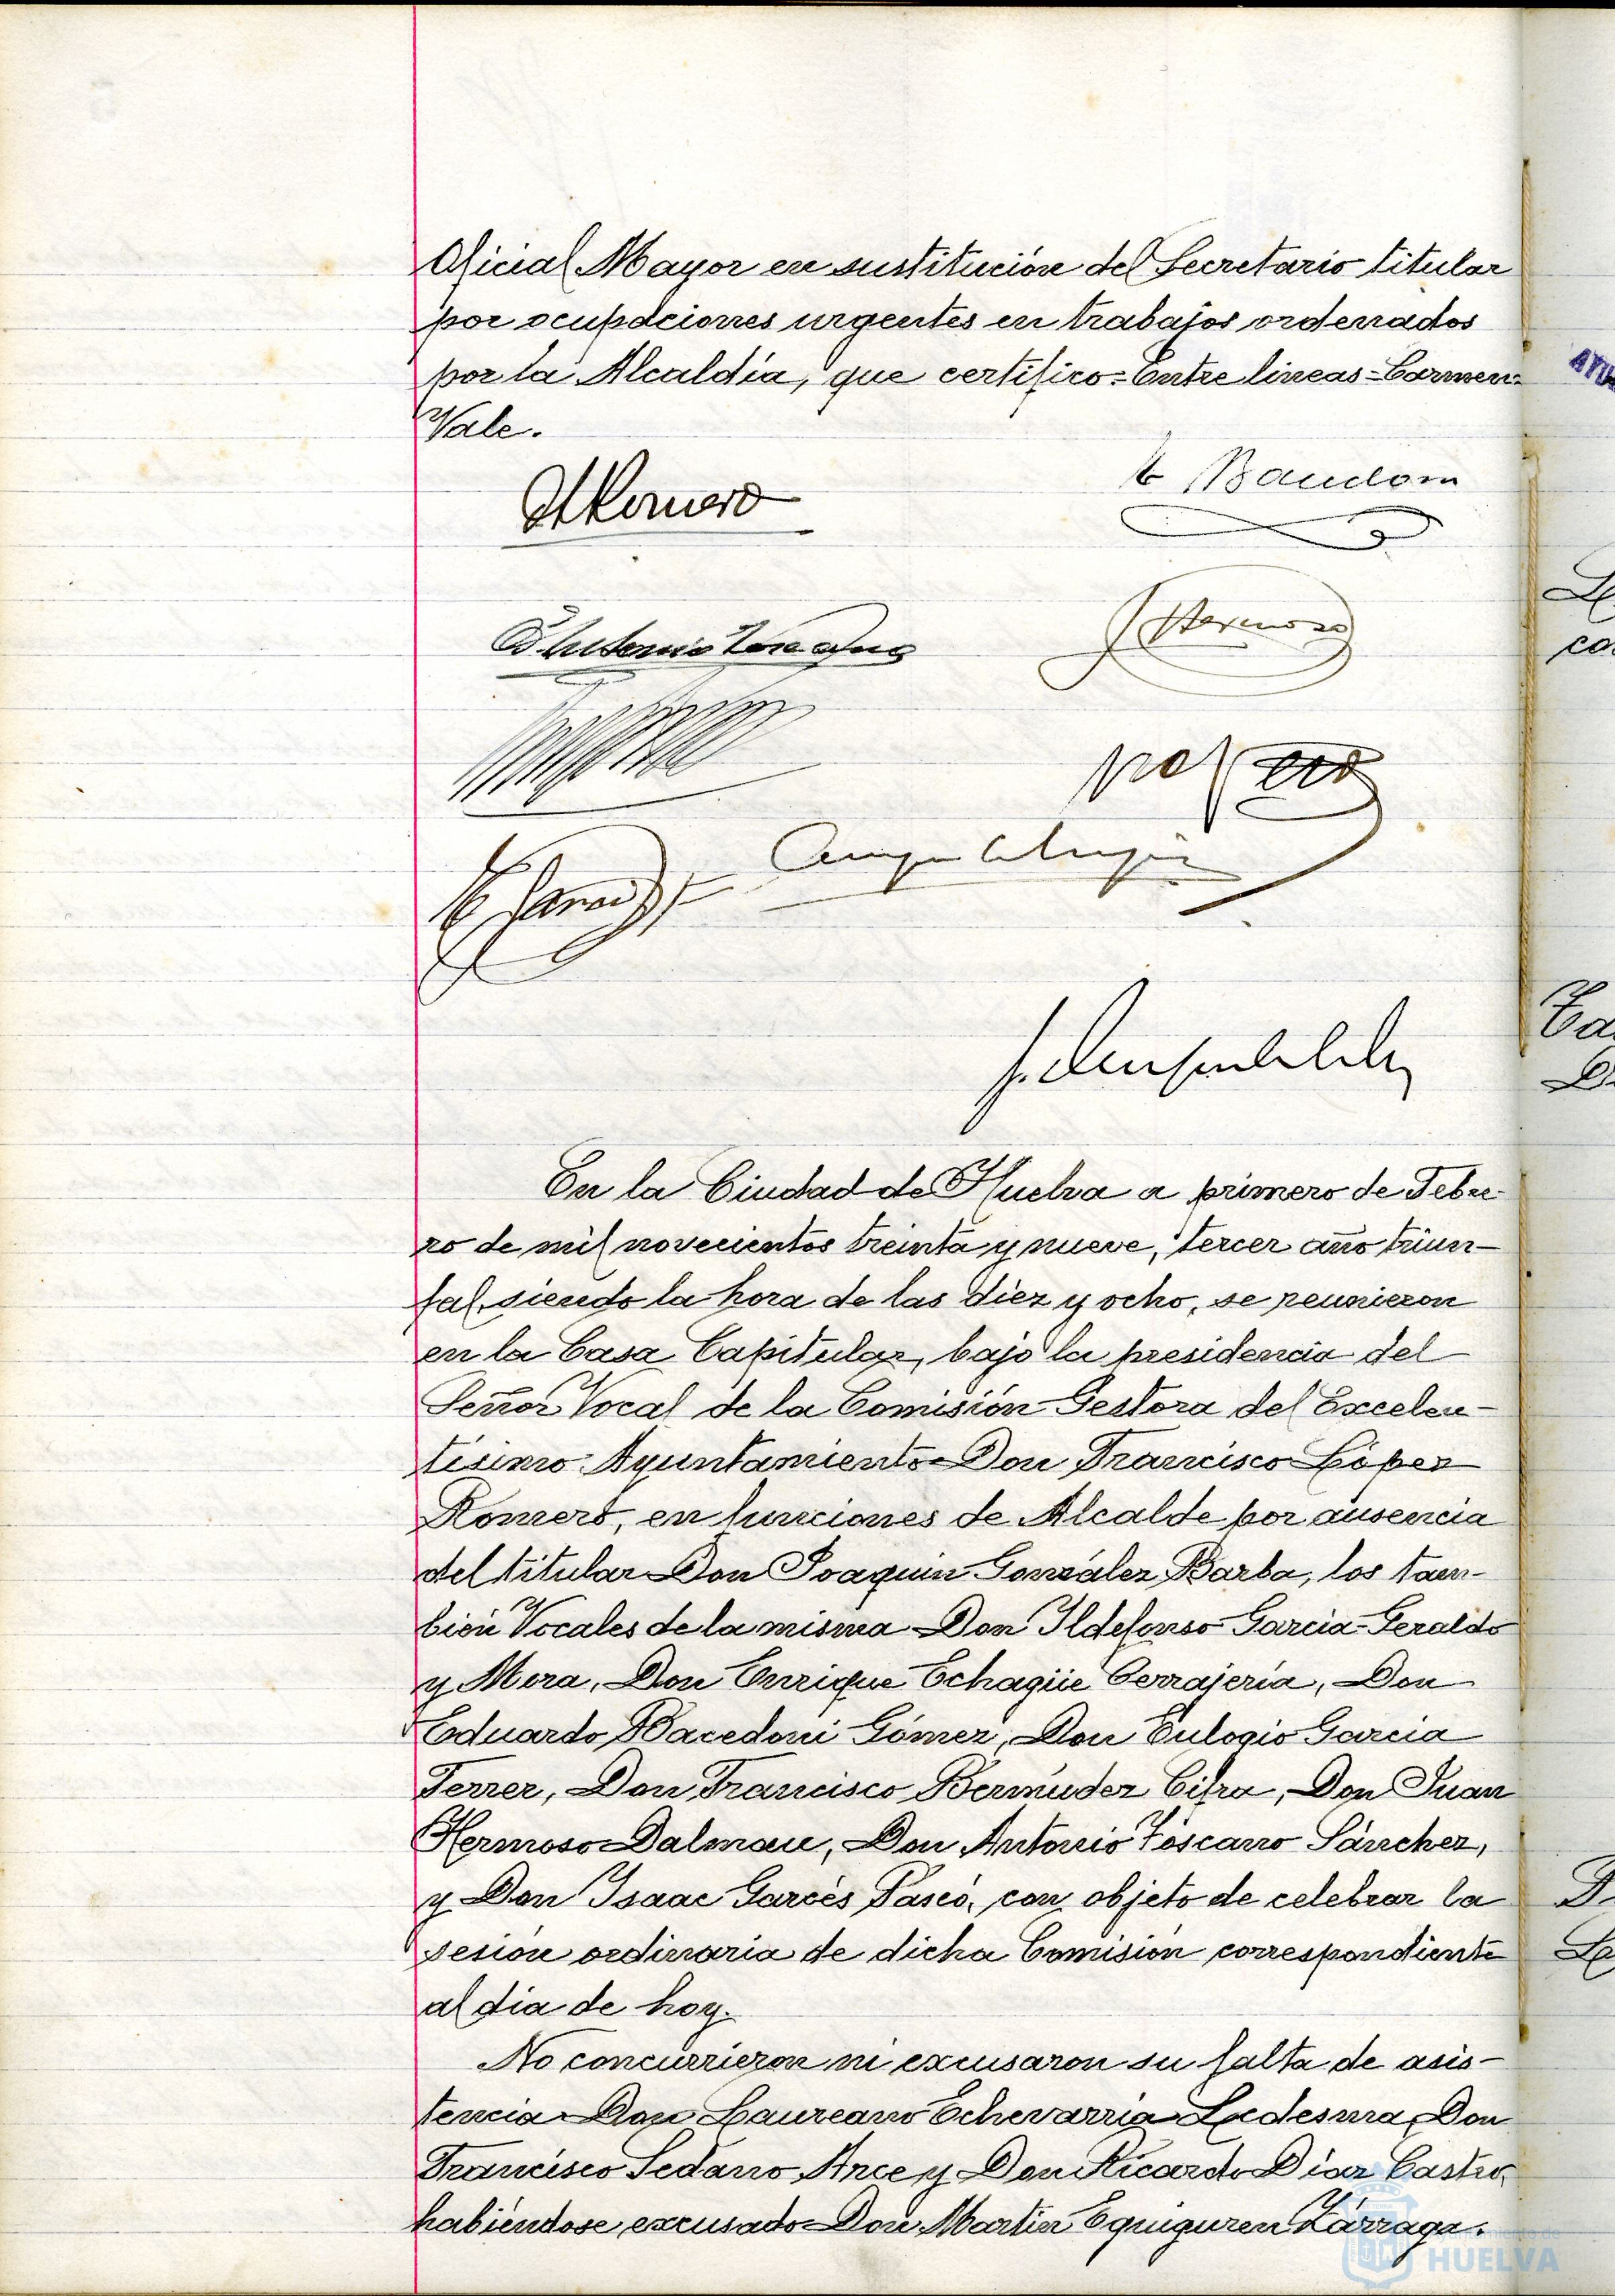 Oficial Mayor en sustitución del Secretario titular
por ocupaciones urgentes en trabajos ordenados
por la Alcaldía, que certifico=Entre lineas=Carmen=
Vale.
Romero
Hermoso
En la Ciudad de Huelva a primero de Febre-
ro de mil novecientos treinta y nueve, tercer año triun-
fal, siendo la hora de las diez y ocho, se reunieron
en la Casa Capitular, bajo la presidencia del
Señor Vocal de la Comisión Gestora del Excelen-
tísimo Ayuntamiento Don Francisco López
Romero, en funciones de Alcalde por ausencia
del titular Don Joaquín González Barba, los tam-
bién Vocales de la misma Don Ildefonso García-Geraldo
y Mora, Don Enrique Echagüe Cerrajería, Don
Eduardo Bacedoni Gómez, Don Eulogio García
Ferrer, Don Francisco Bermúdez Cifra, Don Juan
Hermoso Dalmau, Don Antonio Toscano Sánchez,
y Don Isaac Garcés Pascó, con objeto de celebrar la
sesión ordinaria de dicha Comisión correspondiente
al día de hoy.
No concurrieron ni excusaron su falta de asis-
tencia Don Laureano Echevarría Ledesma, Don
Francisco Sedano Arce y Don Ricardo Díaz Castro,
habiéndose excusado Don Martín Eguiguren Zárraga.
HUELVA